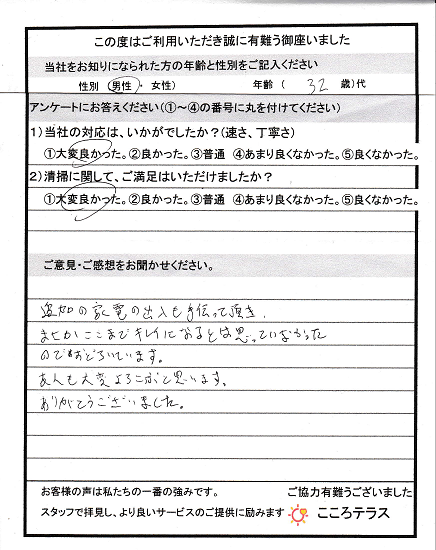 この度はご利用いただき誠に有難う御座いました
当社をお知りになられた方の年齢と性別をご記入ください
性別 (男性 ・ 女性) 年齢 ( 32 歳)代
アンケートにお答えください(①~④の番号に丸を付けてください)
1)当社の対応は、いかがでしたか?(速さ、丁寧さ)
①大変良かった。②良かった。③普通 ④あまり良くなかった。⑤良くなかった。
2)清掃に関して、ご満足はいただけましたか?
①大変良かった。②良かった。③普通 ④あまり良くなかった。⑤良くなかった。
ご意見・ご感想をお聞かせください。
追加の家電の出入も手伝って頂き、
まさかここまでキレイになるとは思っていなかった
のでおどろいています。
友人も大変よろこぶと思います。
ありがとうございました。
お客様の声は私たちの一番の強みです。 ご協力有難うございました
スタッフで拝見し、より良いサービスのご提供に励みます こころテラス